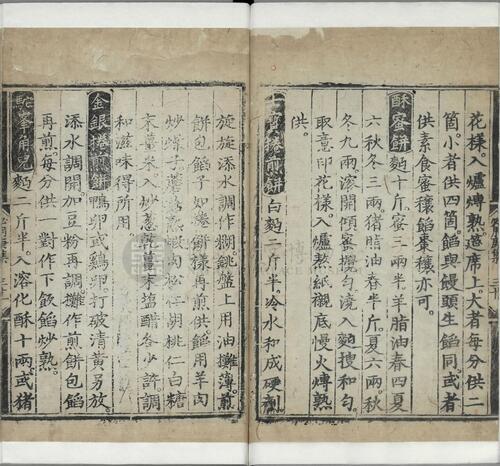 花樣。入爐熁熟。遶席上。大者每分供二
箇。小者供四箇。餡與饅頭生餡同。或者
供素食蜜穰餡棗穰亦可。
酥蜜餅 麪十斤。蜜三兩半。羊脂油春四夏
六秋冬三兩。猪脂油春半斤。夏六兩。秋
冬九兩。溶開傾蜜攪勻。澆入麪搜和勻。
取意印花樣。入爐熬紙襯底慢火熁熟
供。
七寶捲煎餅 白麪二斤半。冷水和成硬劑
旋旋添水調作糊。銚盤上用油攤薄煎
餅包餡子如捲餅樣再煎供。餡用羊肉
炒臊子蘑菇熟蝦肉松仁胡桃仁白糖
末薑米。入炒葱乾薑末塩醋各少許調
和滋味得所用
金銀捲煎餅 鴨卵或雞卵打破清黃另放
添水調開加豆粉再調攤作煎餅包餡
再煎每分供一對作下飲餡炒熟。
駝峯角兒 麪二斤半。入溶化酥十兩。或猪